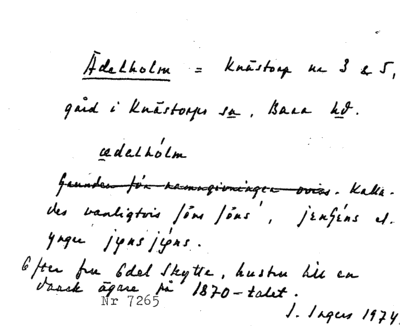 Ädelholm = Knästorp nr 3 & 5,
gård i Knästorps sn, Bara hd.
ædelhólm
Grunden för namngivningen oviss. Kalla-
des vanligtvis Jöns Jöns',
yngre
Efter fru Edel Skytte, hustru till en
dansk ägare på 1870-talet.
Nr 7265
I. Ingers 1974.